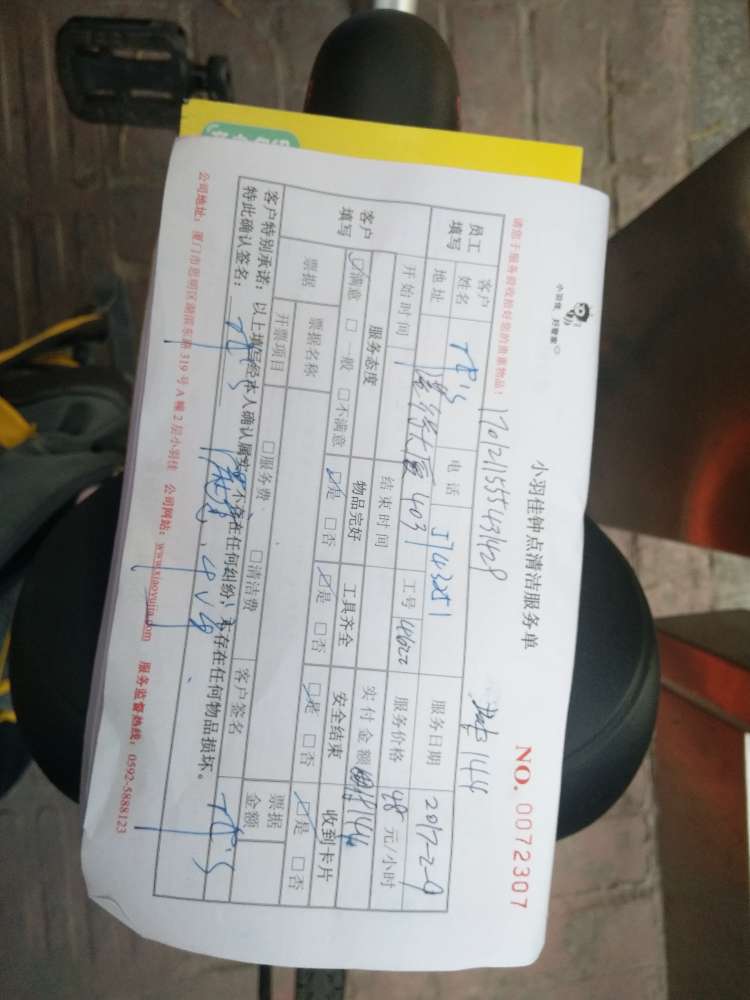 小羽佳 好管家
小羽佳钟点清洁服务单
NO. 0072307
请您于服务前收拾好您的贵重物品!
员工填写 客户姓名 电话 5743251 服务日期 2017-2-9
地址 403 工号 服务价格 48 元/小时
开始时间 结束时间 实付金额 144
客户填写 服务态度 物品完好 工具齐全 安全结束 收到卡片
☑满意 □一般 □不满意 ☑是 □否 ☑是 □否 ☑是 □否 ☑是 □否
票据 票据名称 票据金额
开票项目 □服务费 □清洁费 客户签名
客户特别承诺:以上填写经本人确认属实,不存在任何纠纷,未存在任何物品损坏。
特此确认签名:
公司地址:厦门市思明区湖滨东路319号A幢2层小羽佳 公司网站:www.xiaoyujia.com 服务监督热线:0592-5888123